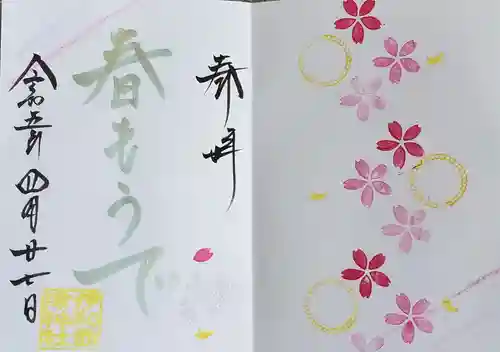 奉拝
春もうで
令和五年四月廿七日